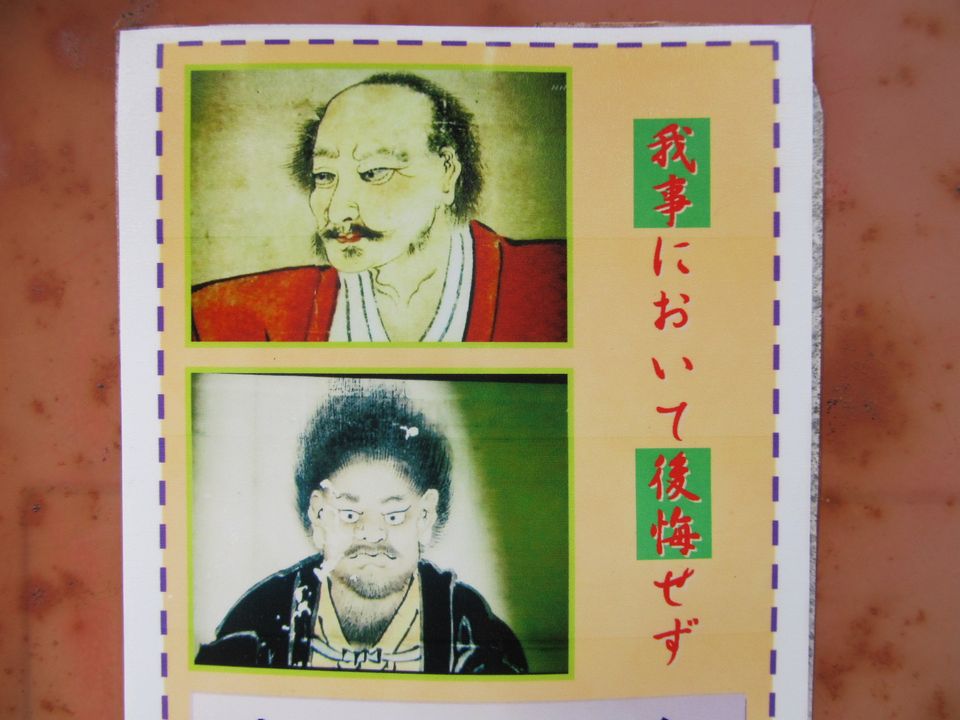 我事において後悔せず